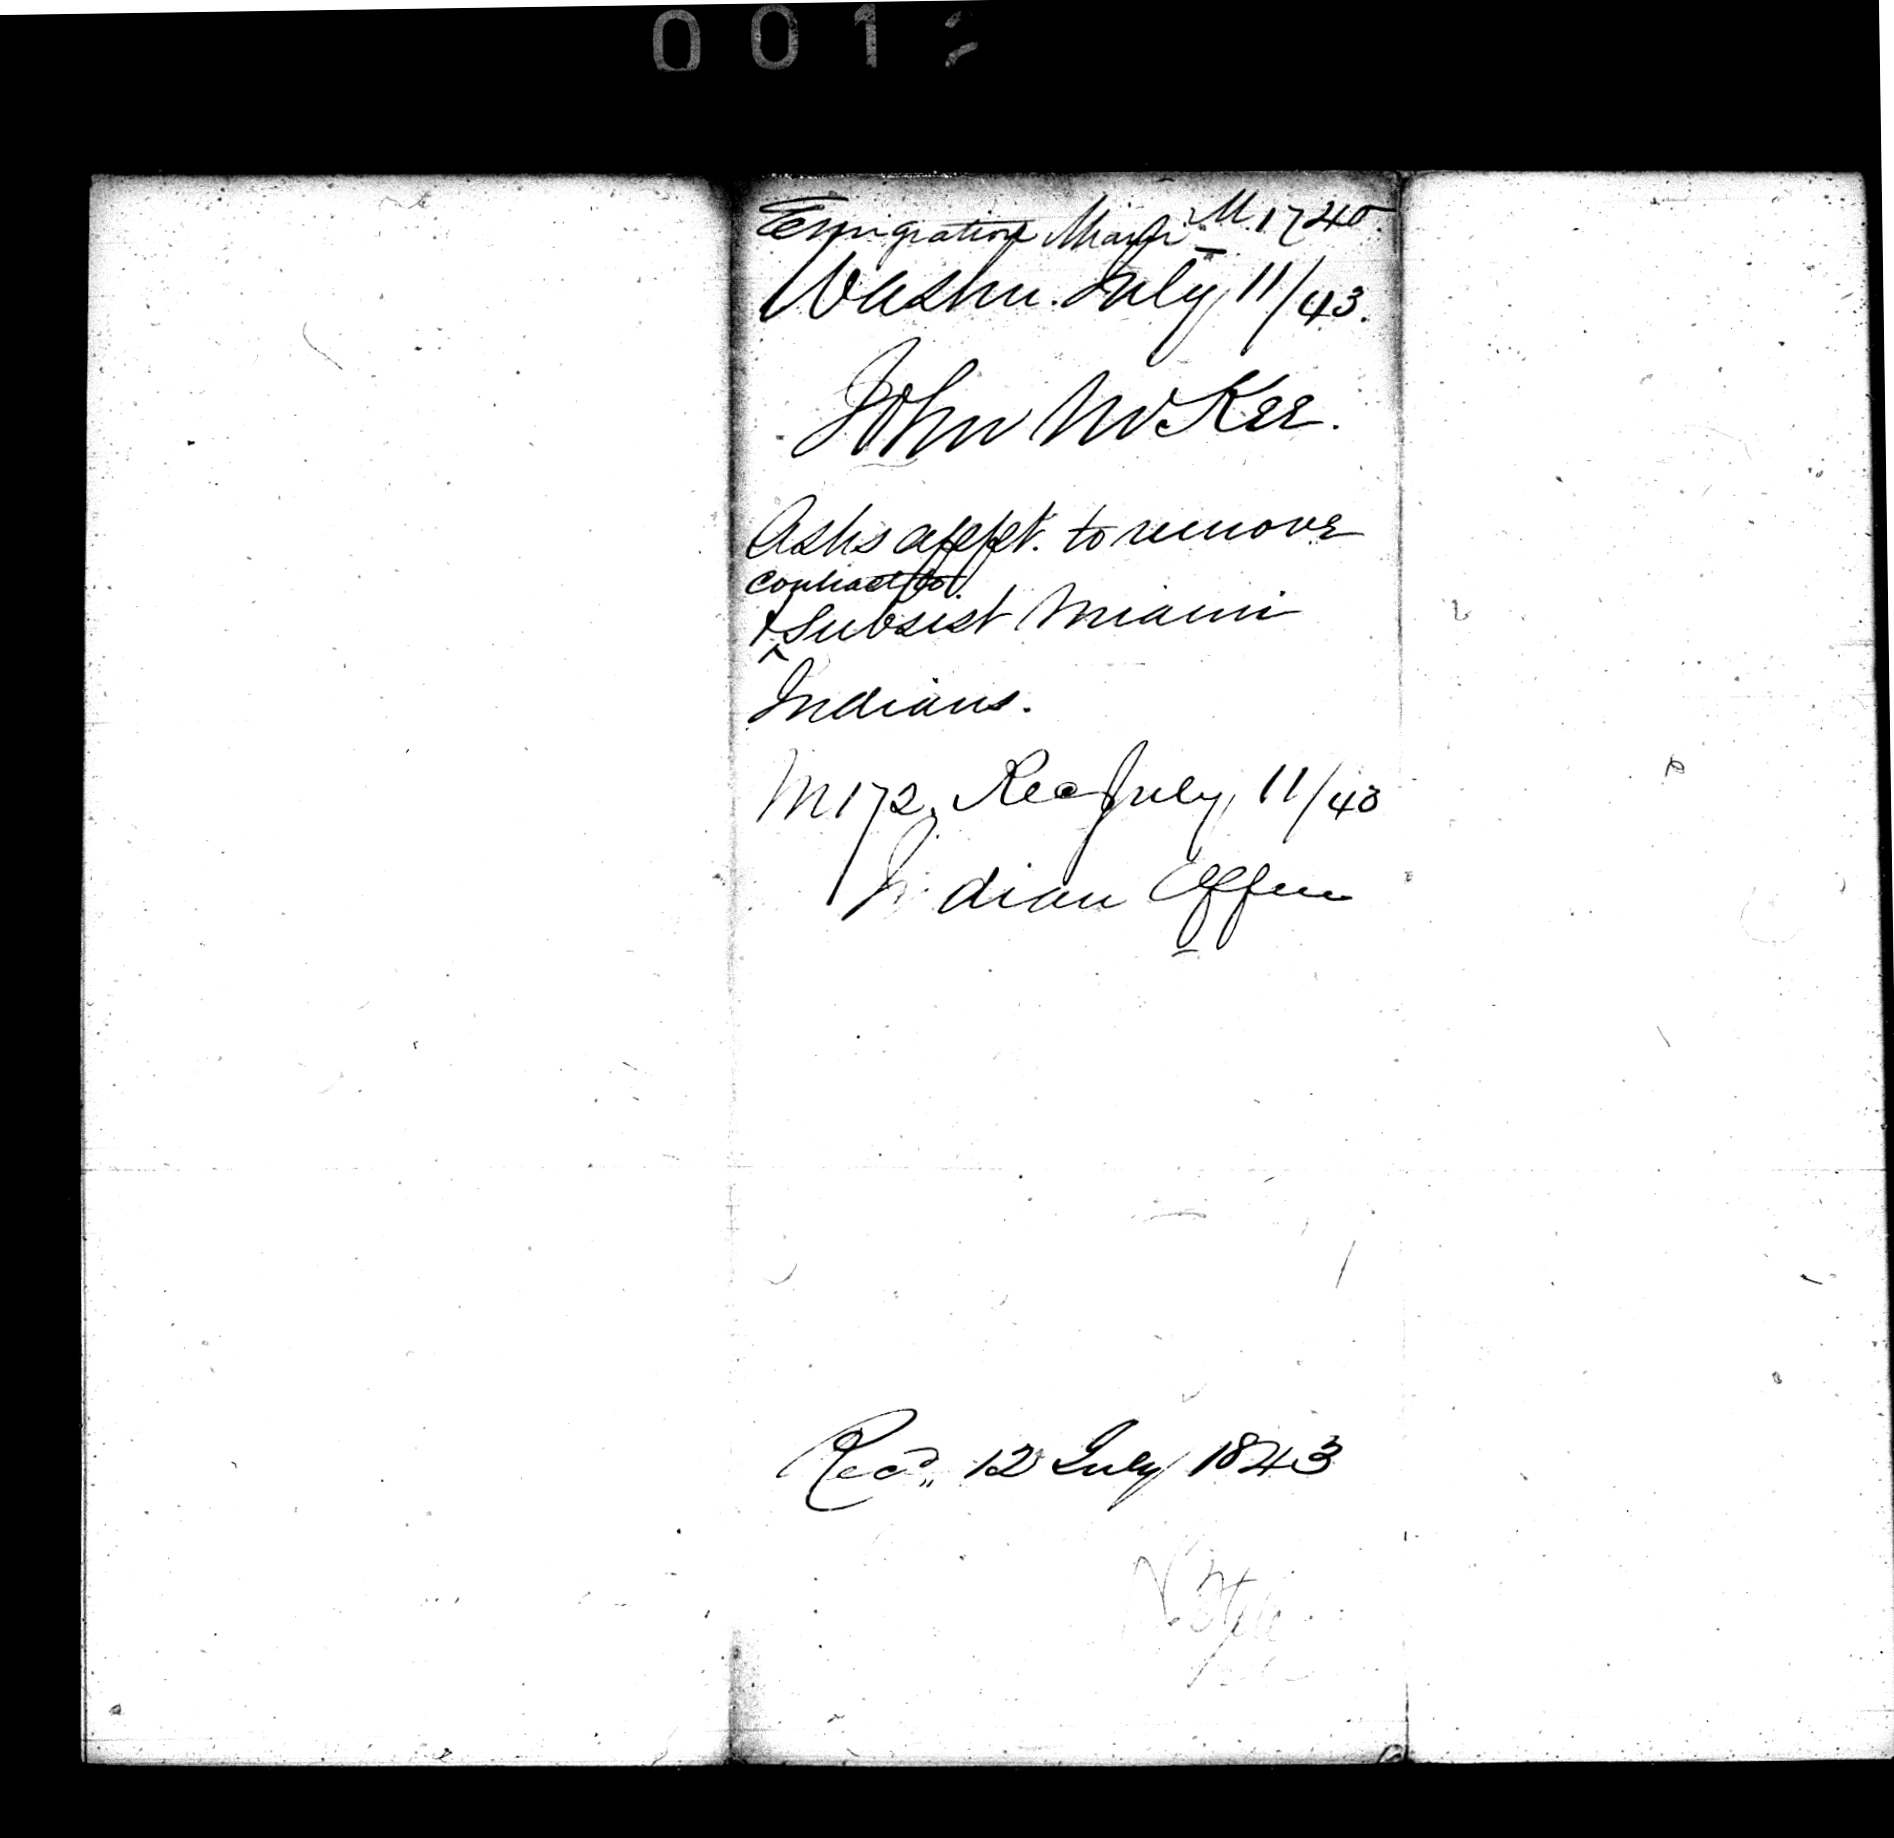 001
Emigration Miami M. 1740.
Washn. July 11/43.
John McKee.
Asks appt. to remove
contract to
& Subsist Miami
Indians.
M172. Rec July 11/43
Indian Office
Recd. 12 July 1843